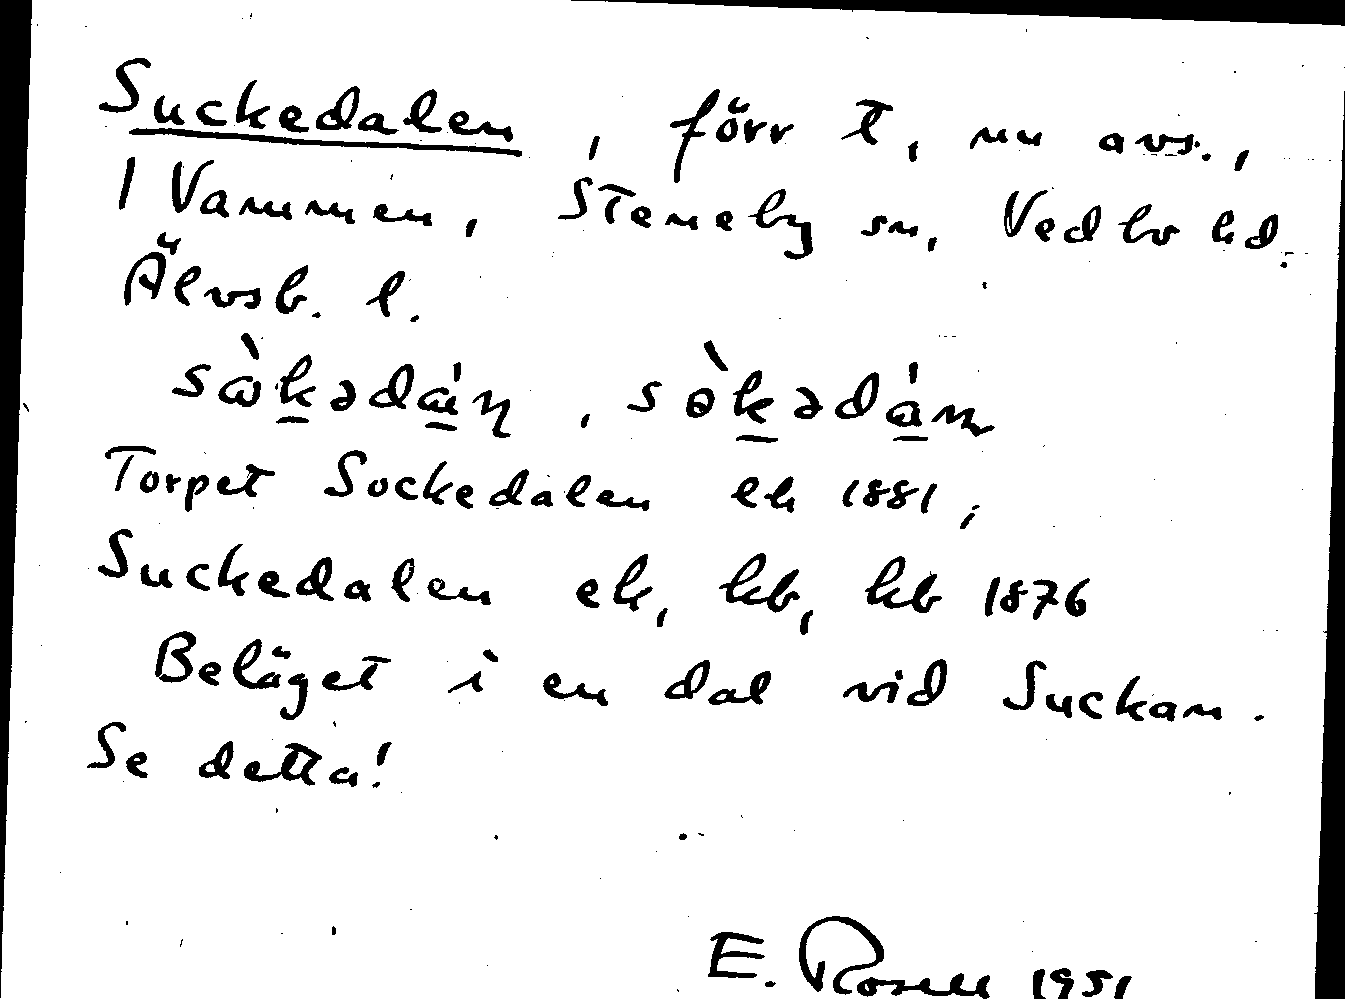 Suckedalen, förr t, nu avs.,
1 Vammen, Steneby sn, Vedbo hd.
Älvsb. l.
Torpet Sockedalen ek 1881,
Suckedalen ek, kb, hb 1876
Beläget i en dal vid Suckan.
Se detta!
E. Rosell 1951